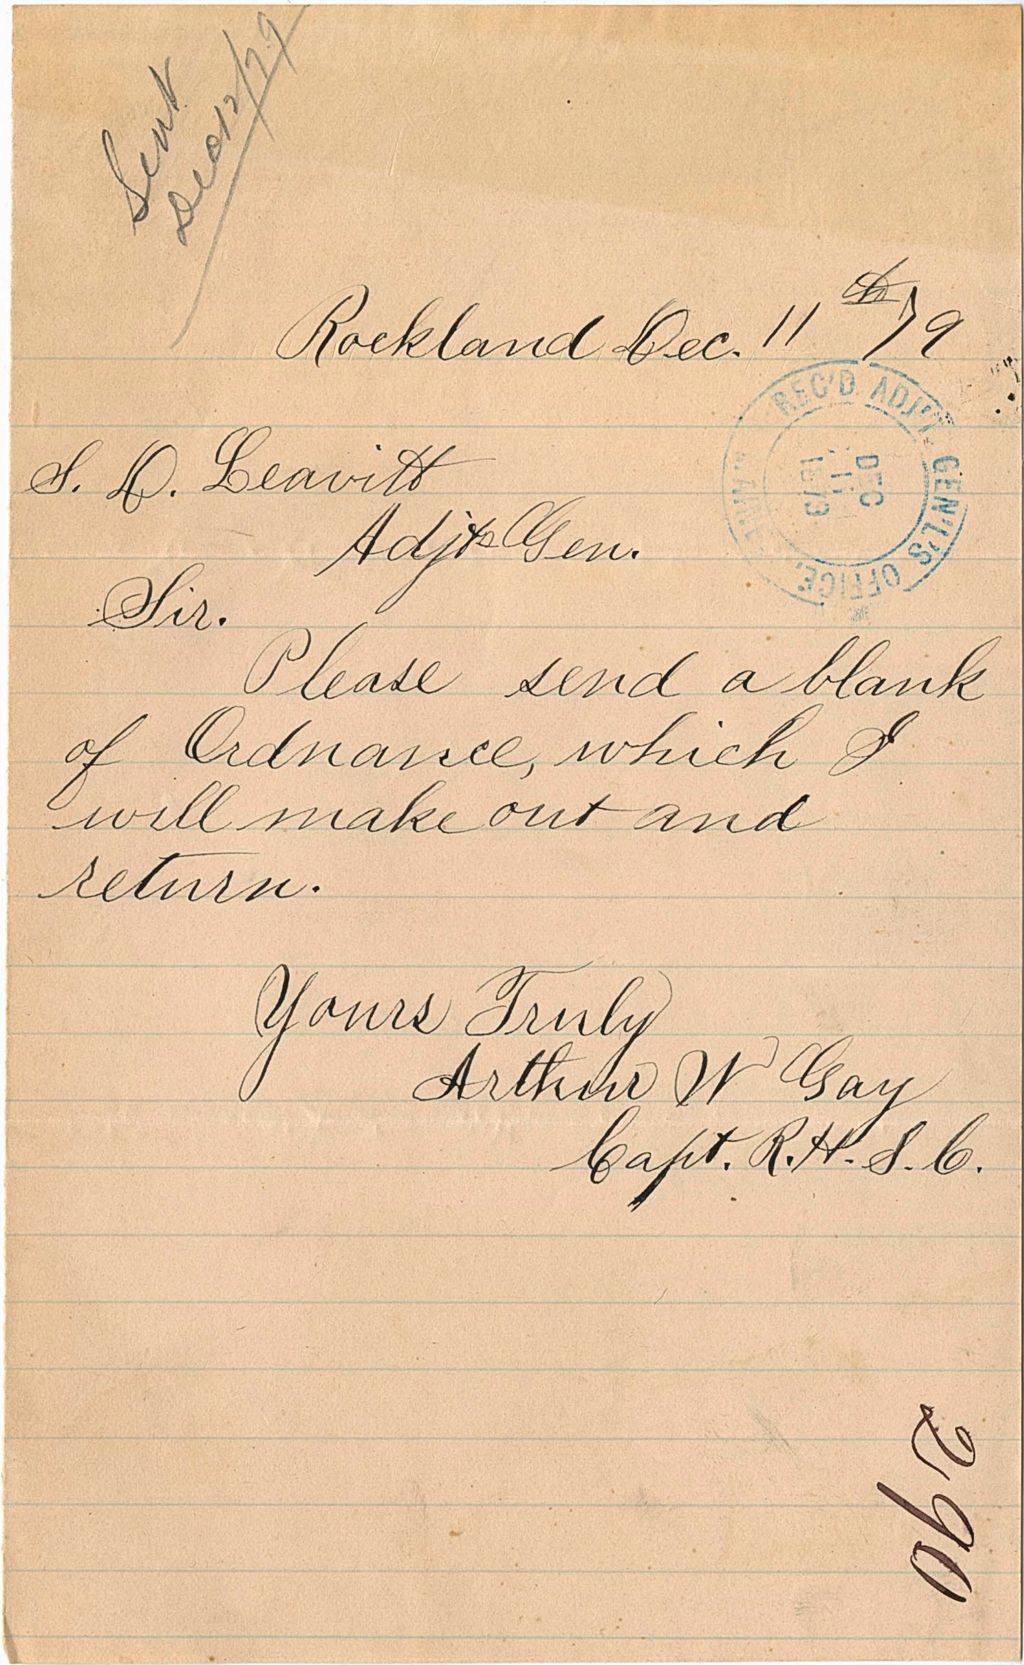 Sent
Dec 12/79
Rockland Dec. 11th 79
REC'D ADJ'T GEN'L'S OFFICE,
DEC
11
1879
S. D. Leavitt
Adjt Gen.
Sir.
Please send a blank
of Ordnance, which I
will make out and
return.
Yours Truly
Arthur W Gay
Capt. R. H. S. C.
290